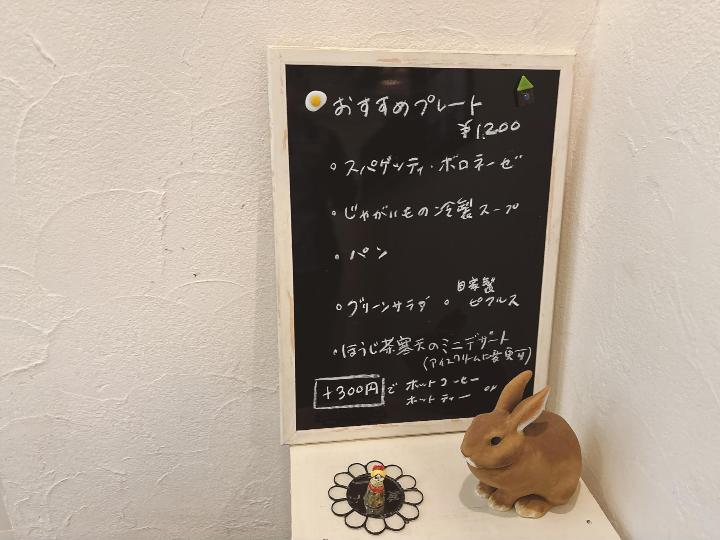 おすすめプレート
¥1,200
・スパゲッティ・ボロネーゼ
・じゃがいもの冷製スープ
・パン
・グリーンサラダ ・自家製ピクルス
・ほうじ茶寒天のミニデザート
(アイスクリームに変更可)
+300円で ホットコーヒー or
ホットティー